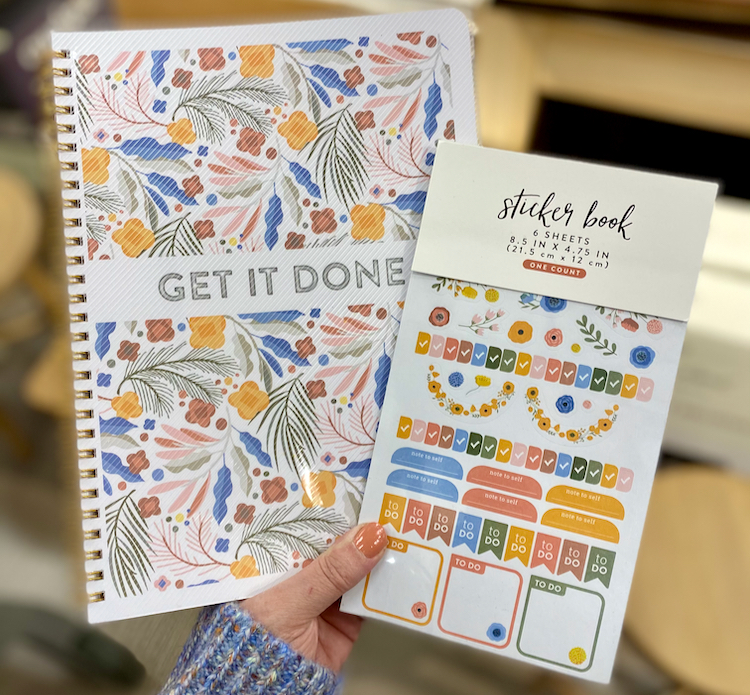 GET IT DONE
sticker book
6 SHEETS
8.5 IN X 4.75 IN
(21.5 cm x 12 cm)
ONE COUNT
note to self note to self note to self
note to self note to self note to self
to to to to to to to to to
DO DO DO DO DO DO DO DO DO
DO TO DO TO DO